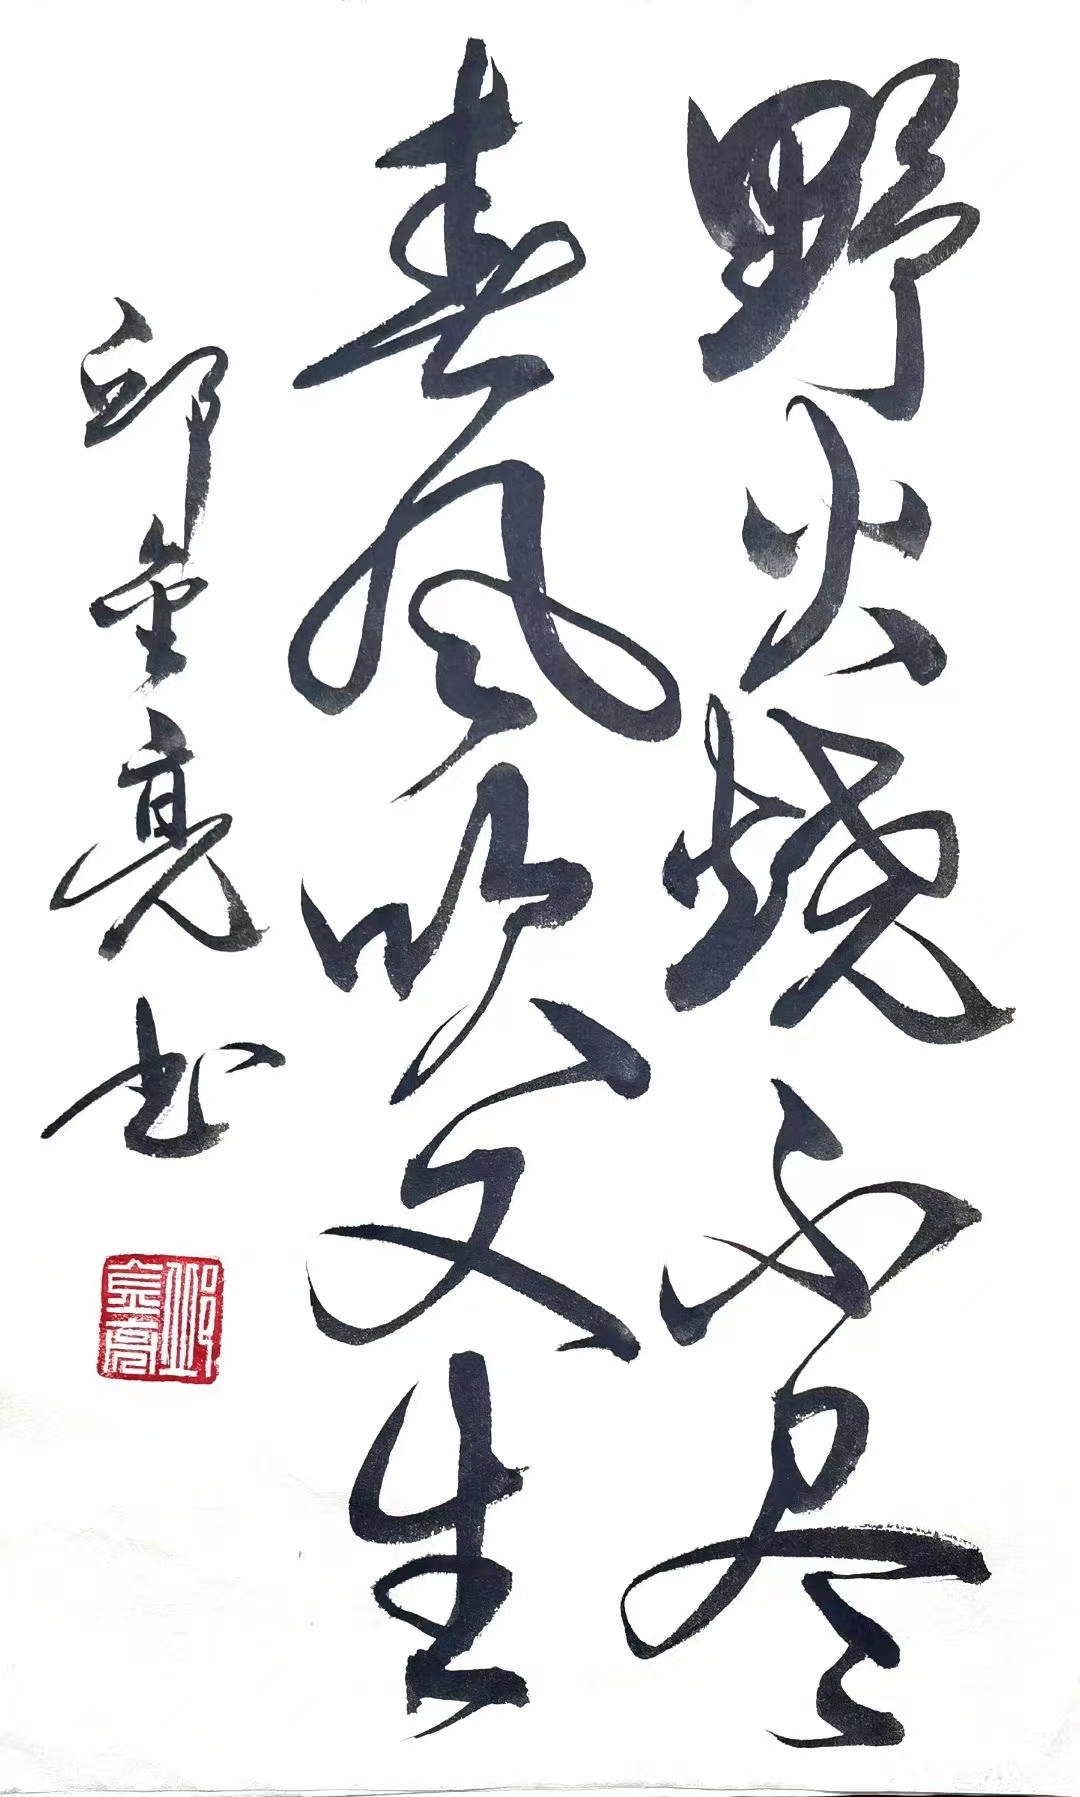 野火烧不尽
春风吹又生
邱金亮书
邱金亮